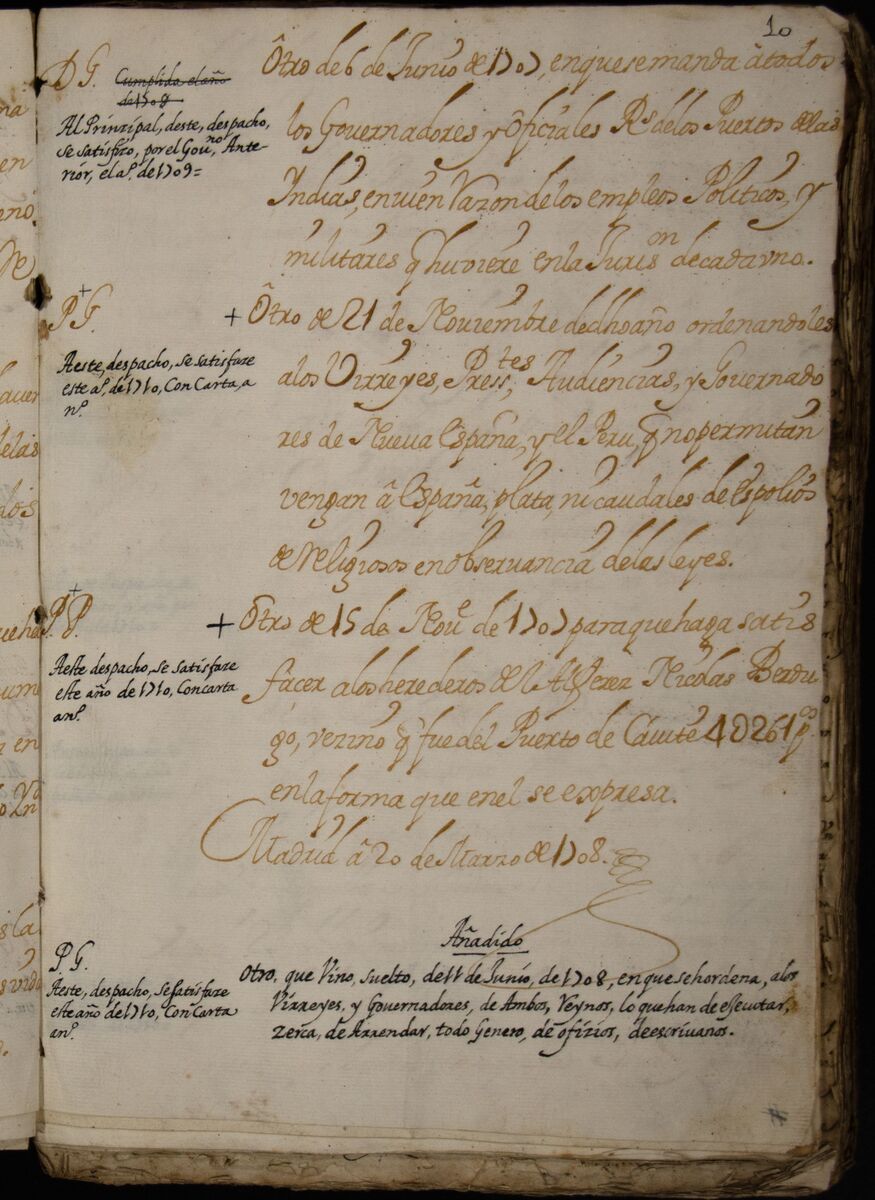 10
D G.
Cumplida el año
de 1708
Al Prinzipal, deste, despacho,
se satisfizo, por el Gou.no Ante-
rior, el a.o de 1709=
Otro de 6 de Junio de 1707, en que se manda â todos
los Governadores y Ofiçiales R.s de los Puertos de las
Indias, envien razon de los empleos Politicos, y
militares q huviere en la Juris.on de cada vno.
P G.
Aeste, despacho, se satisfaze
este a.o, de 1710, Con Carta, a
n.o
+ Otro de 21 de Noviembre de dho año ordenandoles
a los Virreyes, Press.tes, Audiençias, y Governado
res de Nueua España, y el Peru, q no permitan
vengan â España, plata, ni caudales de Espolios
de religiosos en observançia de las leyes.
P. P.
Aeste despacho, se satisfaze
este año de 1710, Con carta
an.o
+ Otro de 15 de Nou.e de 1707 para que haga satis
façer a los herederos del Alferez Nicolas Berdu
go, vezino q fue del Puerto de Cavite 4D261 p.os
en la forma que en el se expresa.
Madrid â 20 de Marzo de 1708.
Añadido
P. G.
Aeste, despacho, se satisfaze
este año de 1710, Con Carta
an.o
Otro, que Vino, suelto, de 11 de Junio, de 1708, en que se hordena, a los
Virreyes, y Governadores, de Ambos, Reynos, lo que han de effecutar,
zerca, de Arrendar, todo Genero, de ofizios, de escriuanos.